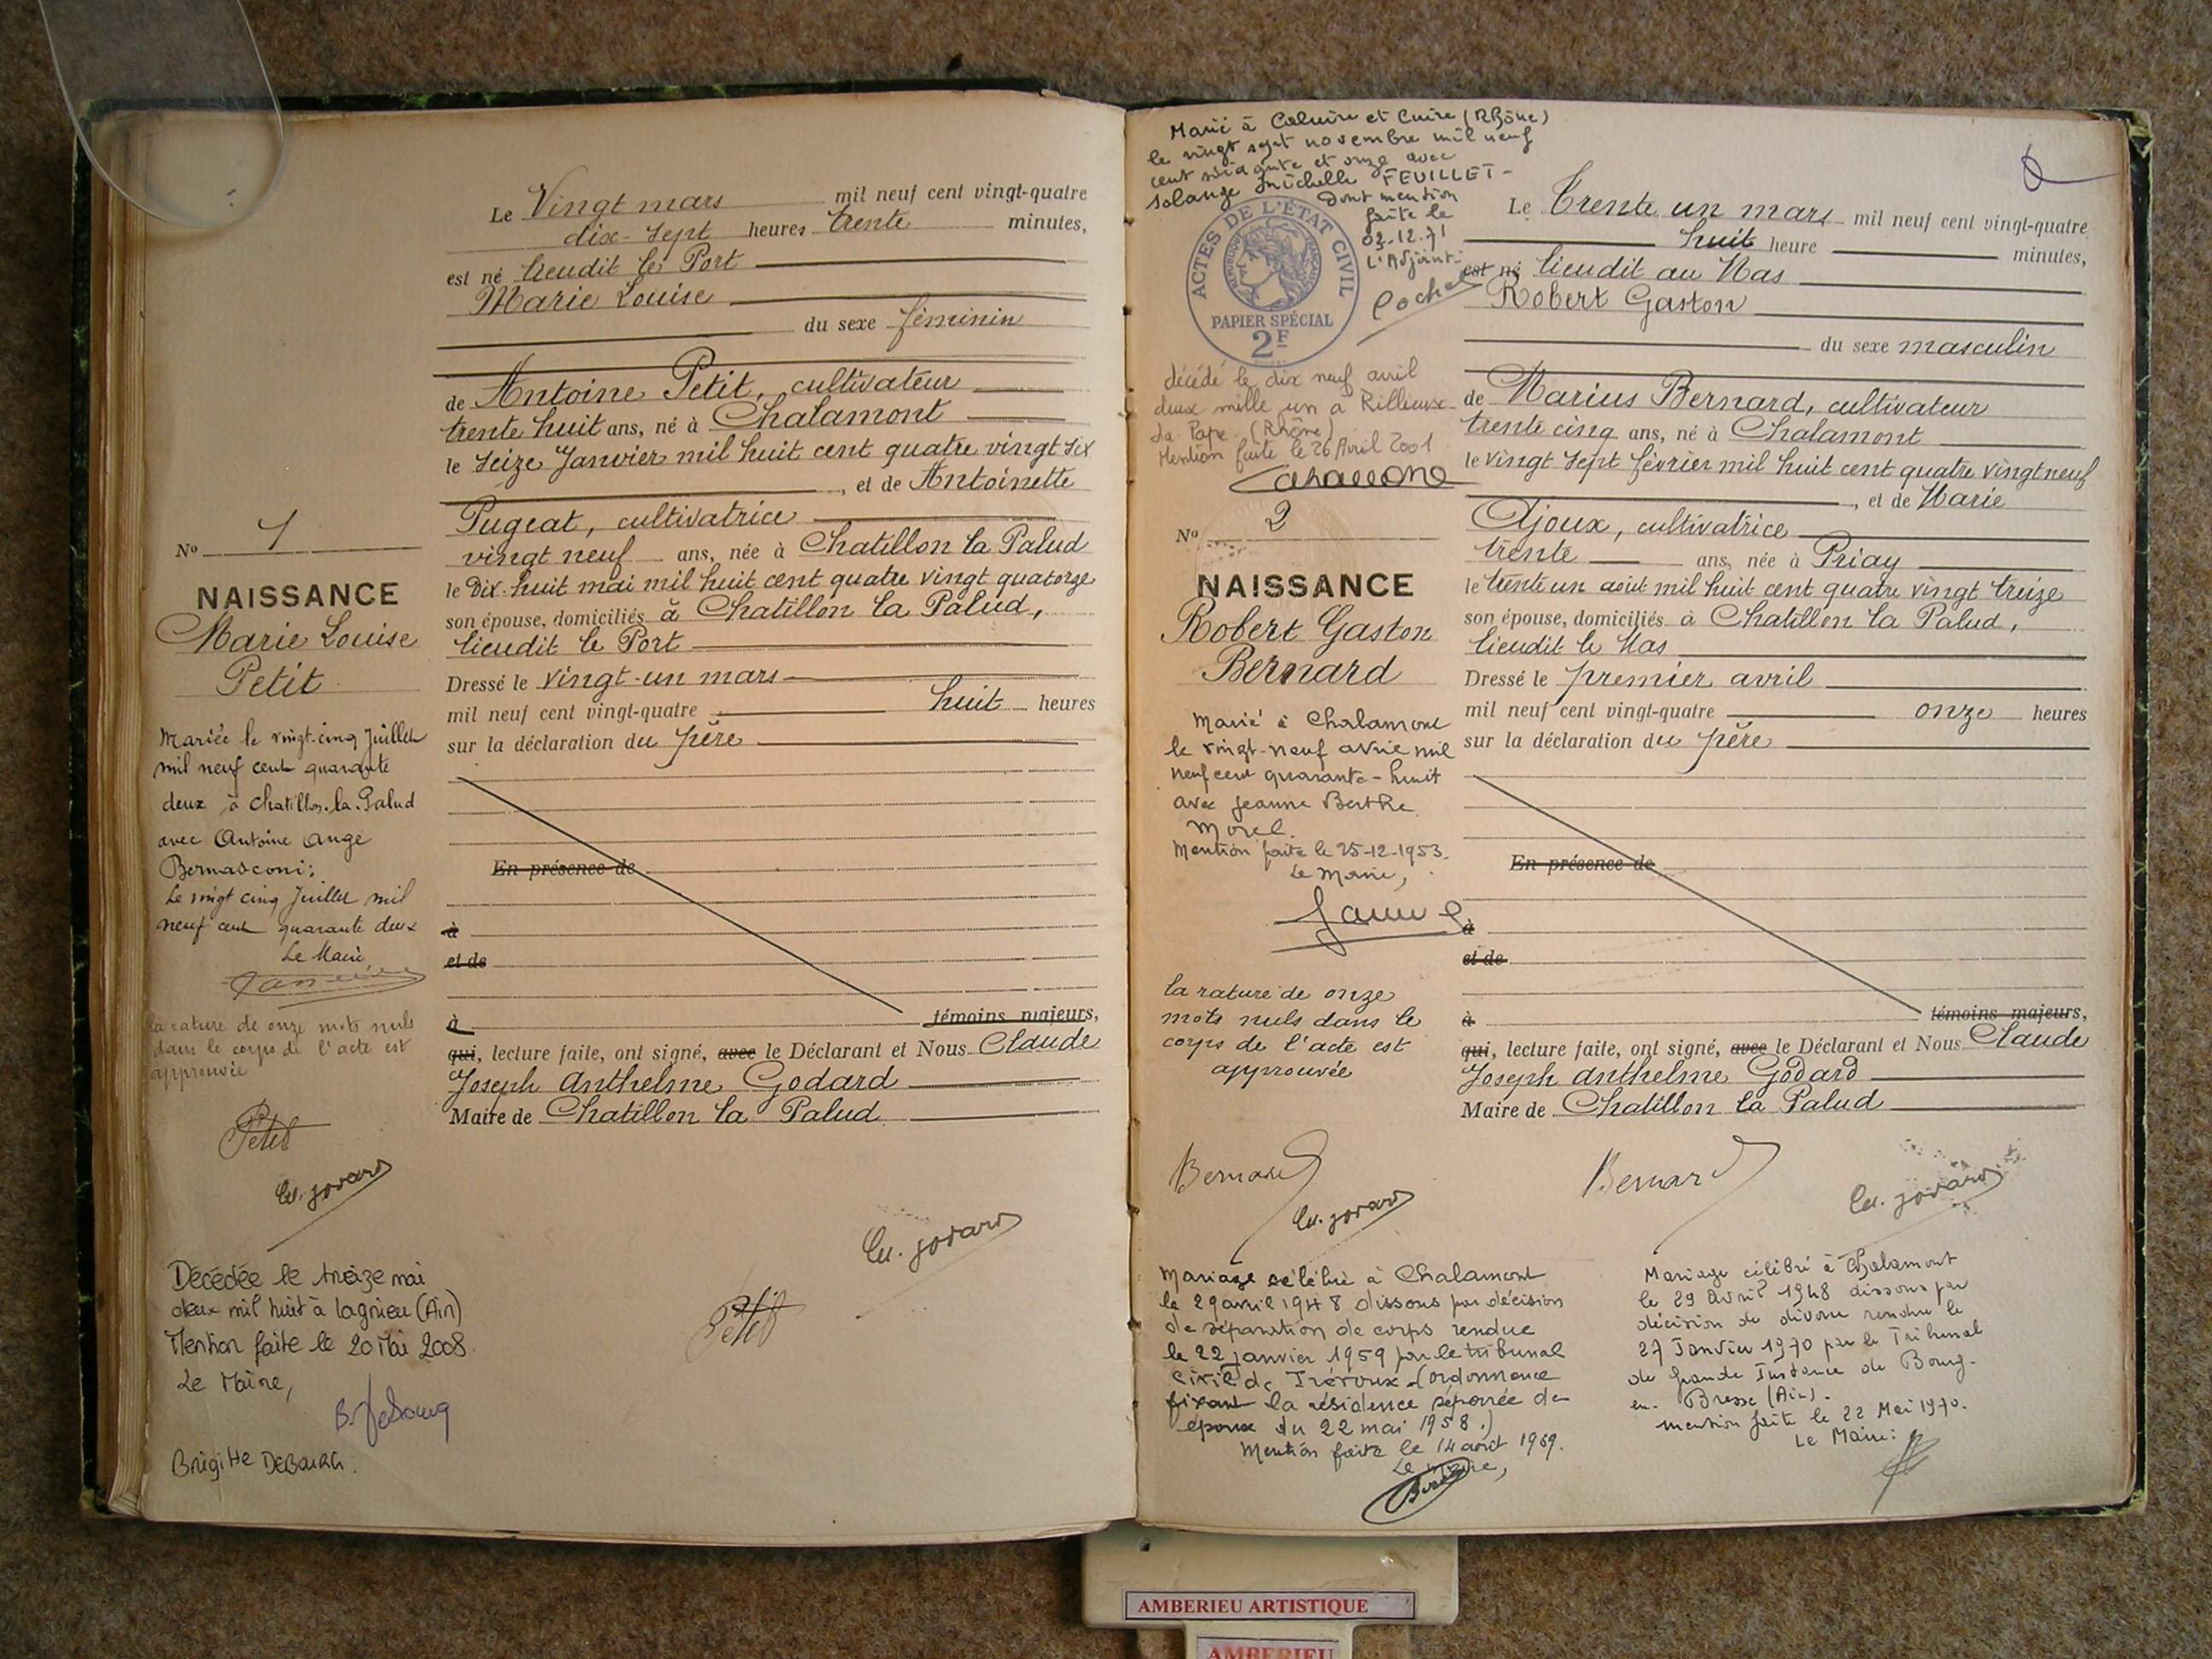 Le Vingt mars mil neuf cent vingt-quatre
dix-sept heures trente minutes,
est né lieudit le Port
Marie Louise
du sexe féminin
de Antoine Petit, cultivateur
trente huit ans, né à Chalamont
le seize Janvier mil huit cent quatre vingt six
, et de Antoinette
Pugeat, cultivatrice
vingt neuf ans, née à Chatillon la Palud
le Dix-huit mai mil huit cent quatre vingt quatorze
son épouse, domiciliés à Chatillon la Palud,
lieudit le Port
Dressé le vingt-un mars
mil neuf cent vingt-quatre huit heures
sur la déclaration du père
En présence de
à
et de
à témoins majeurs,
qui, lecture faite, ont signé, avec le Déclarant et Nous Claude
Joseph Anthelme Godard
Maire de Chatillon la Palud
No 1
NAISSANCE
Marie Louise
Petit
Mariée le vingt-cinq Juillet
mil neuf cent quarante
deux à Chatillon-la-Palud
avec Antoine Ange
Bernasconi;
Le vingt cinq Juillet mil
neuf cent quarante deux
Le Maire
la rature de onze mots nuls
dans le corps de l'acte est
approuvée
Petit
Petit
Décédée le treize mai
deux mil huit à Lagnieu (Ain)
Mention faite le 20 Mai 2008
Le Maire,
B. Debourg
Brigitte DEBOURG.
Marié à Caluire et Cuire (Rhône)
le vingt sept novembre mil neuf
cent soixante et onze avec
Solange Michelle FEUILLET-
Dont mention
faite le
03-12-71
L'Adjoint-
ACTES DE L'ÉTAT CIVIL
PAPIER SPÉCIAL
2F
décédé le dix neuf avril
deux mille un à Rillieux-
La-Pape (Rhône)
Mention faite le 26 Avril 2001
No 2
NAISSANCE
Robert Gaston
Bernard
Marié à Chalamont
le vingt-neuf avril mil
neuf cent quarante-huit
avec Jeanne Berthe
Morel.
Mention faite le 25-12-1953.
Le Maire,
la rature de onze
mots nuls dans le
corps de l'acte est
approuvée
Le Trente un mars mil neuf cent vingt-quatre
huit heure minutes,
est né lieudit au Mas
Robert Gaston
du sexe masculin
de Marius Bernard, cultivateur
trente cinq ans, né à Chalamont
le vingt sept février mil huit cent quatre vingt neuf
, et de Marie
Ajoux, cultivatrice
trente ans, née à Priay
le trente un août mil huit cent quatre vingt treize
son épouse, domiciliés à Chatillon la Palud,
lieudit le Mas
Dressé le premier avril
mil neuf cent vingt-quatre onze heures
sur la déclaration du père
En présence de
à
et de
à témoins majeurs,
qui, lecture faite, ont signé, avec le Déclarant et Nous Claude
Joseph Anthelme Godard
Maire de Chatillon la Palud
Bernard
Bernard
Mariage célébré à Chalamont
le 29 avril 1948 dissous par décision
de séparation de corps rendue
le 22 janvier 1959 par le tribunal
civil de Trévoux (ordonnance
fixant la résidence séparée des
époux du 22 mai 1958.)
Mention faite le 14 août 1959.
Le Maire,
Mariage célébré à Chalamont
le 29 Avril 1948 dissous par
décision de divorce rendue le
27 Janvier 1970 par le Tribunal
de Grande Instance de Bourg-
en-Bresse (Ain).
mention faite le 22 Mai 1970.
Le Maire:
AMBERIEU ARTISTIQUE
AMBERIEU